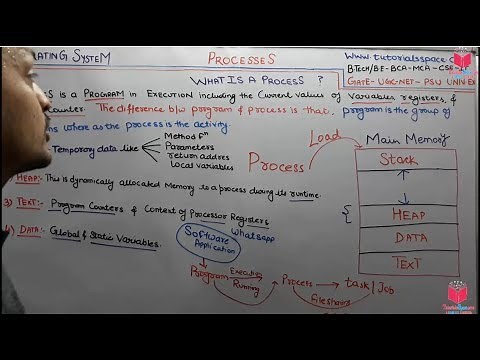 RATING SYSTEM
PROCESSES
www.tutorialsspace.c
BTech/BE-BCA-MCA-CSE-
GATE-UGC-NET-PSU UNIV EX
WHAT IS A PROCESS ?
S IS A PROGRAM IN EXECUTION including the Current values of Variables, registers, &
Counter. The difference b/w program & process is that, program is the group of
ns where as the process is the activity.
Temporary data like
Method Fⁿ
Parameters
return addres
local variables
Process
Load
Main Memory
Stack
HEAP
DATA
TEXT
HEAP:- This is dynamically allocated Memory to a process during its runtime.
3) TEXT:- Program Counters & Content of Processor Registers
4) DATA:- Global & Static Variables.
Software
Application
Whatsapp
Program
Execution
Running
Process
task/Job